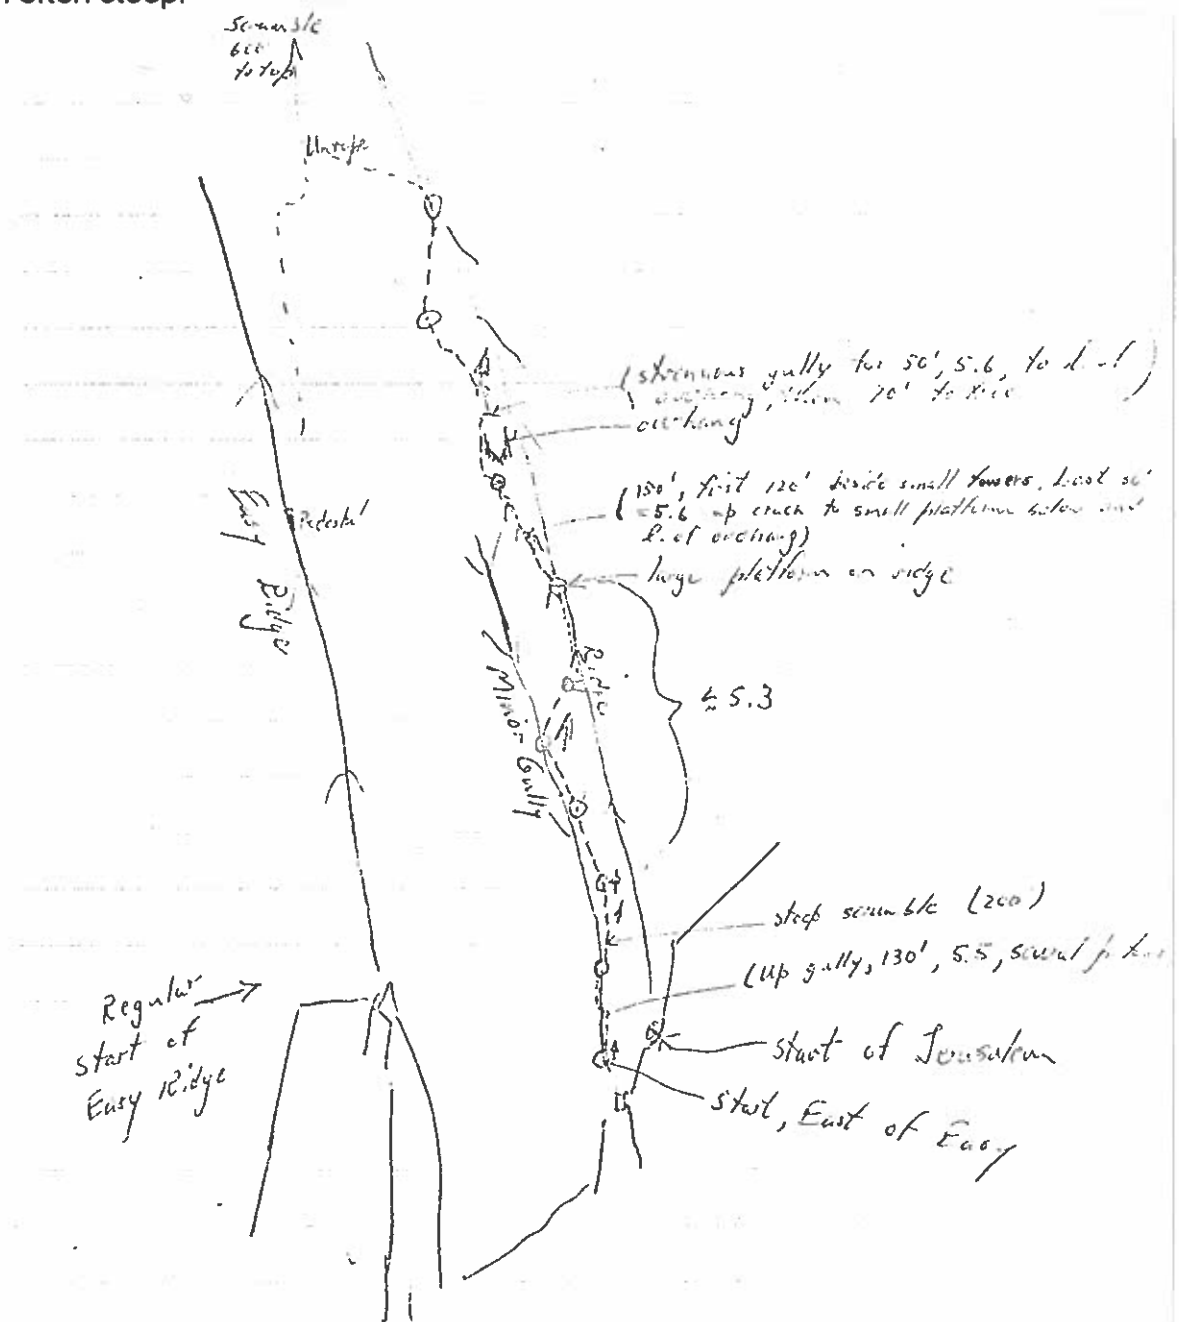 Scramble
600
to top
Unrope
(strenuous gully for 50', 5.6, to l. of
overhang, then 70' to tree)
overhang
(150', first 120' beside small towers. Last 30'
5.6 up crack to small platform below and
l. of overhang)
large platform on ridge
Pedestal
Easy Ridge
Ridge
Minor Gully
≤ 5.3
steep scramble (200)
(Up gully, 130', 5.5, several
Regular
start of
Easy Ridge
start of Jerusalem
Start, East of Easy